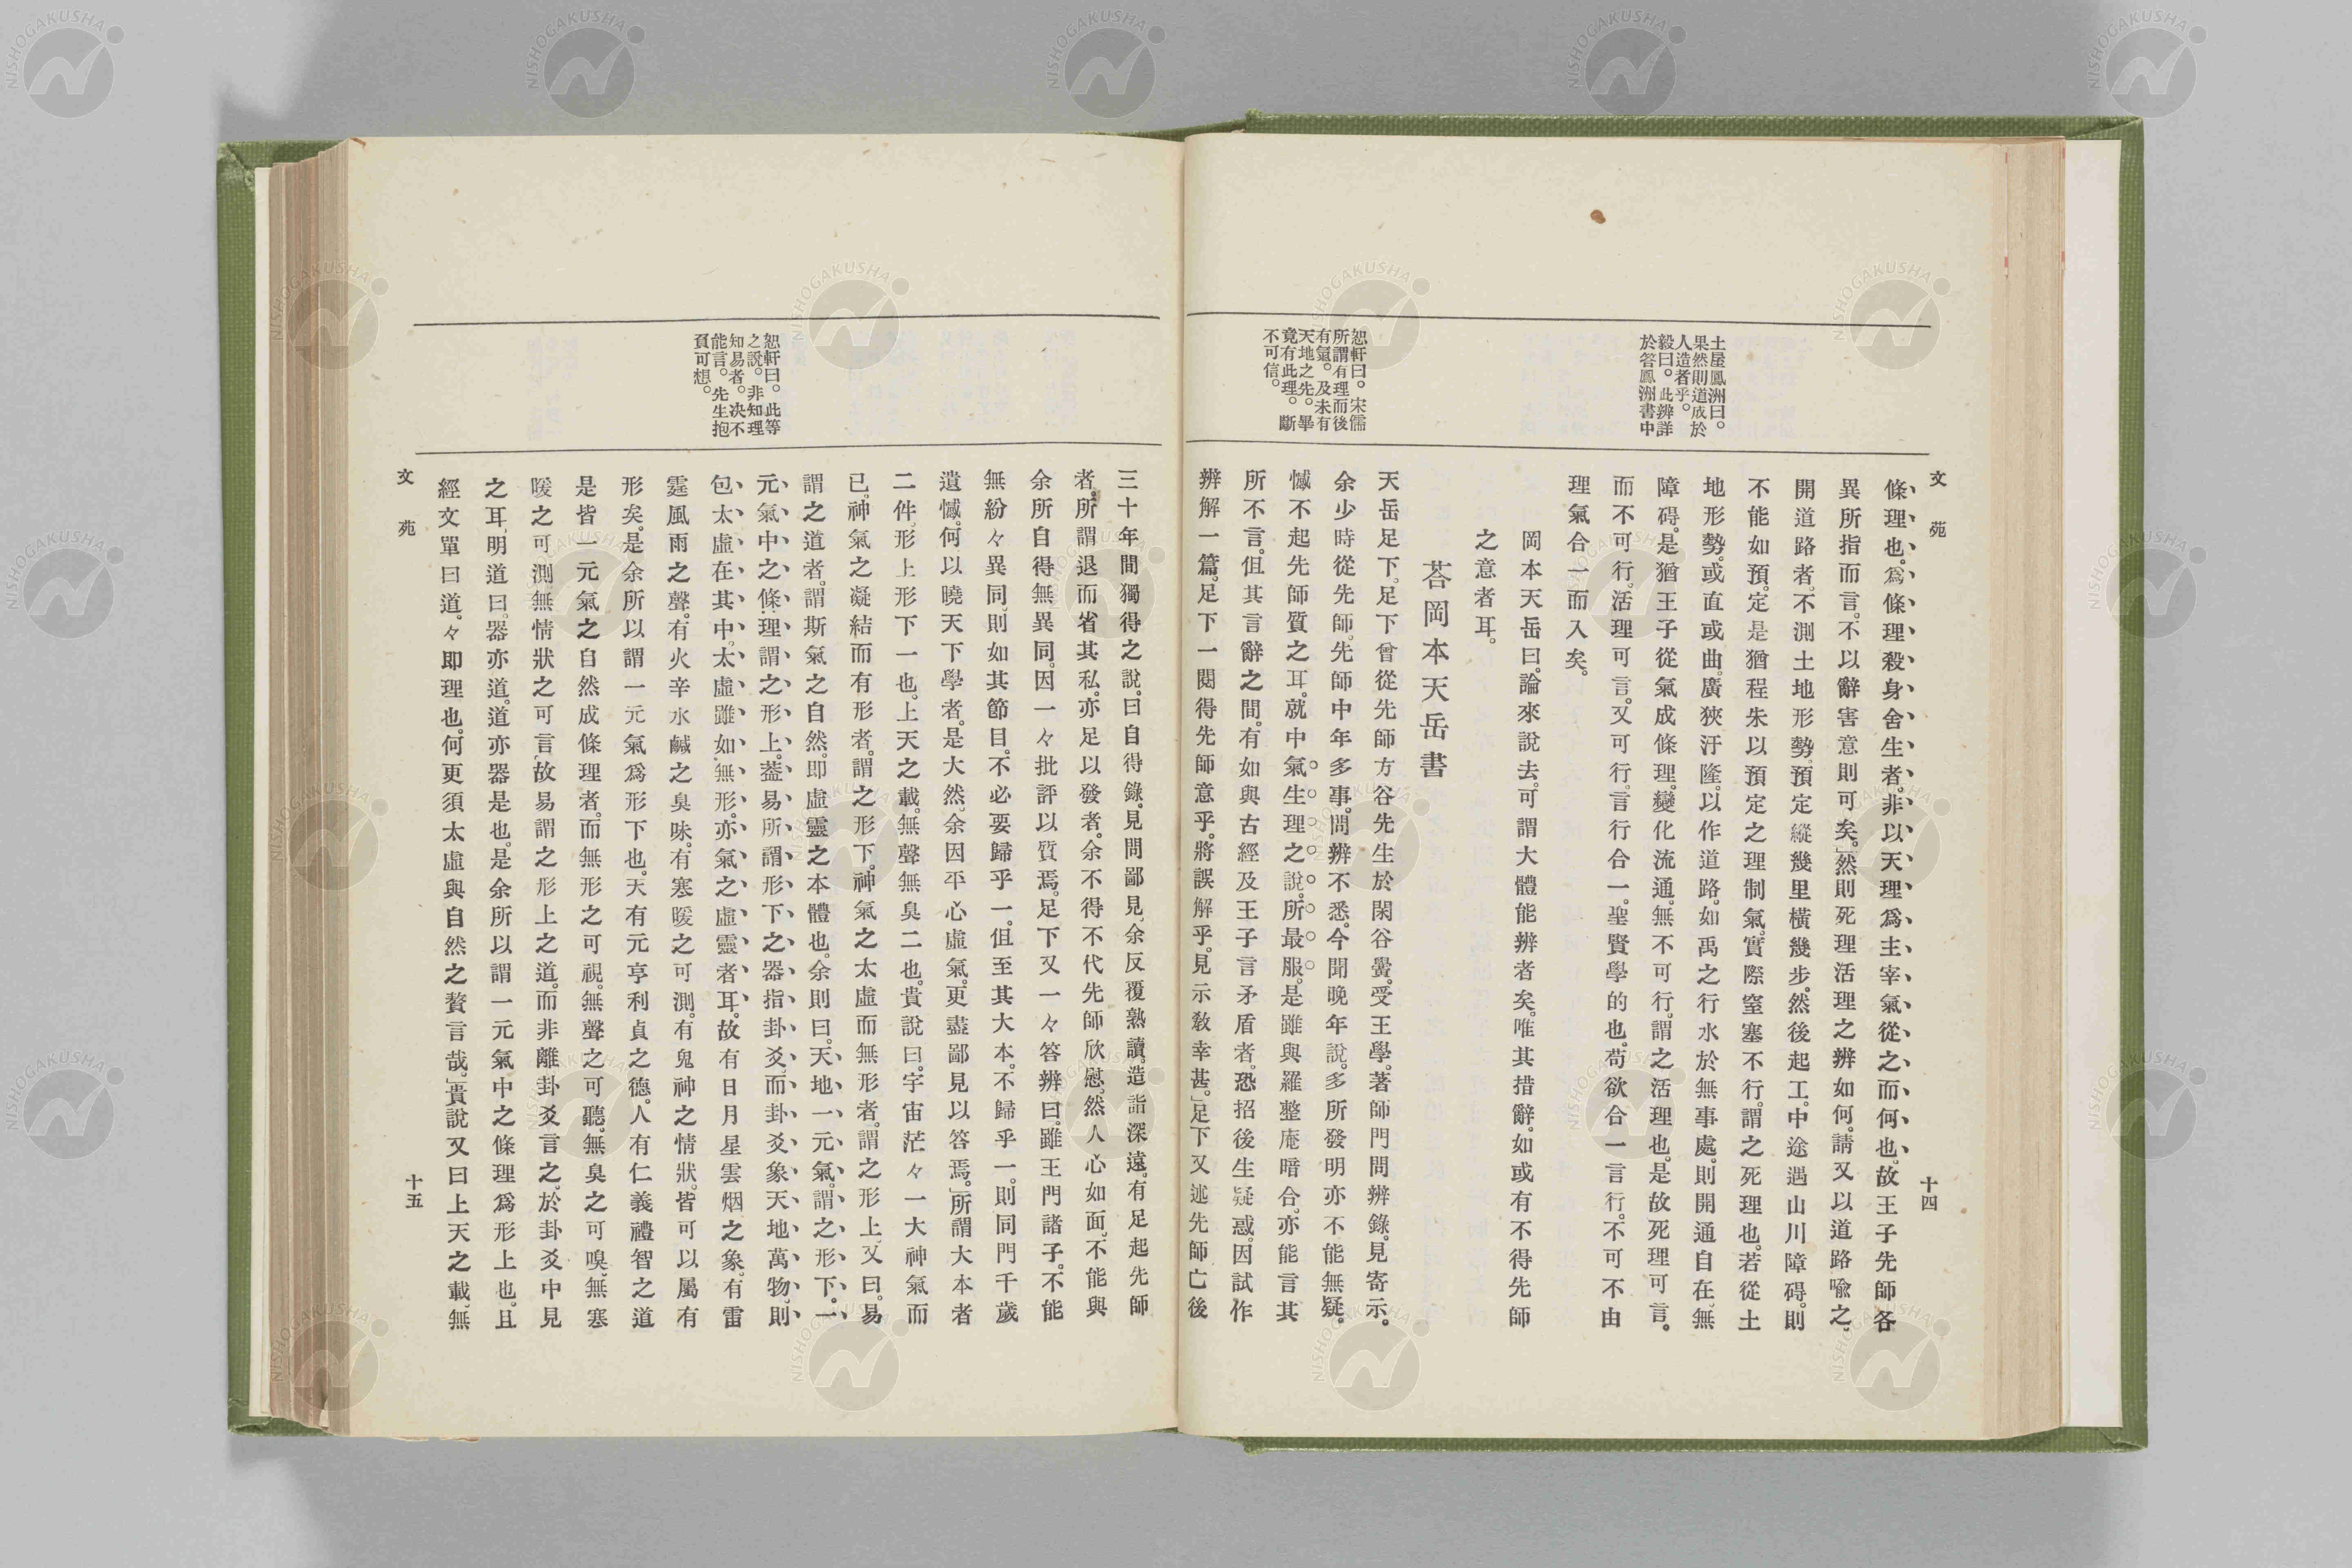 文苑
十四
土屋鳳洲曰。
果然則道成於
人造者乎。
毅曰。此辨詳
於答鳳洲書中
恕軒曰。宋儒
所謂有理而後
有氣。及未有
天地之先。畢
竟有此理。斷
不可信。
條理也。爲條理殺身舍生者。非以天理爲主宰氣從之而何也。故王子先師各
異所指而言。不以辭害意則可矣。」然則死理活理之辨如何。請又以道路喩之、
開道路者、不測土地形勢。預定縱幾里橫幾步。然後起工。中途遇山川障碍。則
不能如預。定是猶程朱以預定之理制氣。實際窒塞不行。謂之死理也。若從土
地形勢。或直或曲。廣狹汙隆。以作道路。如禹之行水於無事處。則開通自在、無
障碍。是猶王子從氣成條理。變化流通。無不可行。謂之活理也。是故死理可言。
而不可行。活理可言。又可行。言行合一。聖賢學的也。苟欲合一言行。不可不由
理氣合一而入矣。
岡本天岳曰。論來說去。可謂大體能辨者矣。唯其措辭。如或有不得先師
之意者耳。
荅岡本天岳書
天岳足下。足下曾從先師方谷先生於閑谷黌。受王學。著師門問辨錄。見寄示。
余少時從先師。先師中年多事。問辨不悉。今聞晩年說。多所發明亦不能無疑。
憾不起先師質之耳。就中氣生理之說。所最服。是雖與羅整庵暗合。亦能言其
所不言。但其言辭之間。有如與古經及王子言矛盾者。恐招後生疑惑。因試作
辨解一篇。足下一閱得先師意乎。將誤解乎。見示敎幸甚。」足下又述先師亡後
三十年間獨得之說。曰自得錄。見問鄙見、余反覆熟讀。造詣深遠。有足起先師
者。所謂退而省其私。亦足以發者。余不得不代先師欣慰。然人心如面、不能與
余所自得無異同。因一々批評以質焉。足下又一々答辨曰。雖王門諸子。不能
無紛々異同、則如其節目。不必要歸乎一。但至其大本。不歸乎一。則同門千歲
遺憾。何以曉天下學者。是大然、余因平心虛氣。更盡鄙見以答焉。」所謂大本者
二件。形上形下一也。上天之載。無聲無臭二也。貴說曰。宇宙茫々一大神氣而
已。神氣之凝結而有形者。謂之形下。神氣之太虛而無形者。謂之形上、又曰。易
謂之道者。謂斯氣之自然。即虛靈之本體也。余則曰。天地一元氣。謂之形下。一
元氣中之條理謂之形上。蓋易所謂形下之器指卦爻、而卦爻象天地萬物、則
包太虛在其中。太虛雖如無形。亦氣之虛靈者耳。故有日月星雲烟之象。有雷
霆風雨之聲。有火辛水鹹之臭味。有寒暖之可測。有鬼神之情狀。皆可以屬有
形矣。是余所以謂一元氣爲形下也。天有元亨利貞之德。人有仁義禮智之道
是皆一元氣之自然成條理者。而無形之可視。無聲之可聽。無臭之可嗅、無寒
暖之可測。無情狀之可言、故易謂之形上之道。而非離卦爻言之、於卦爻中見
之耳、明道曰。器亦道。道亦器是也。是余所以謂一元氣中之條理爲形上也。且
經文單曰道。々即理也。何更須太虛與自然之贅言哉。」貴說又曰上天之載、無
恕軒曰。此等
之說。非知理
知易者。决不
能言。先生抱
負可想。
文苑
十五